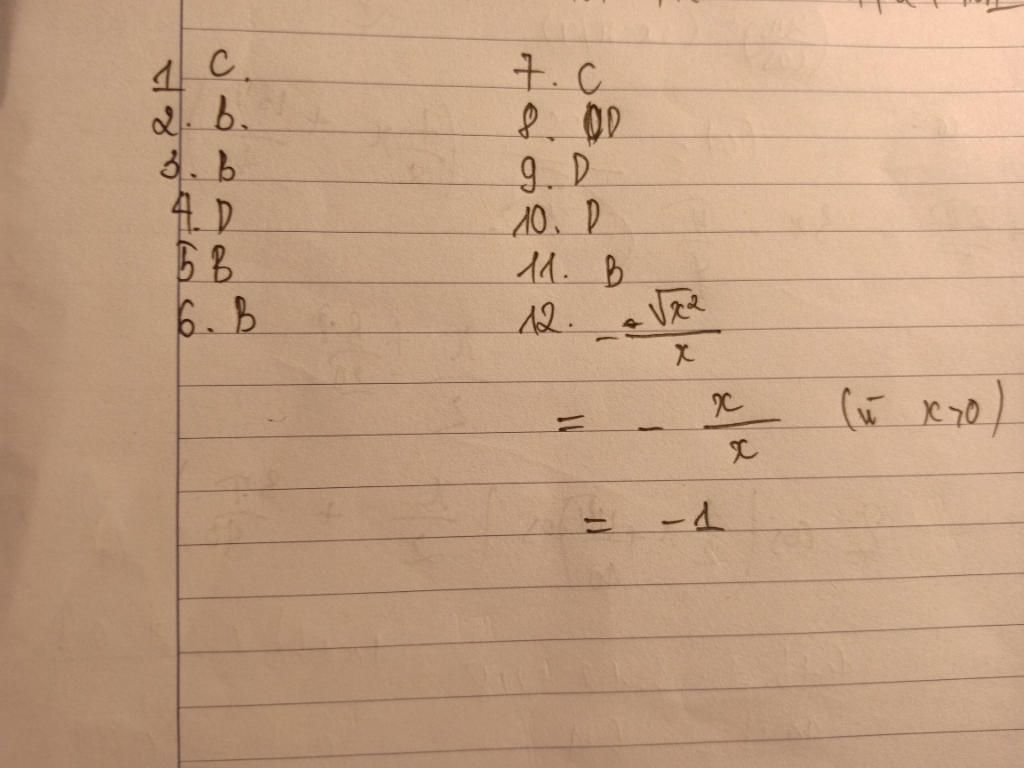 1 C.
2. b.
3. b
4. D
5 B
6. B
7. C
8. D
9. D
10. D
11. B
12. - √x² / x
= - x / x ( x > 0)
= -1